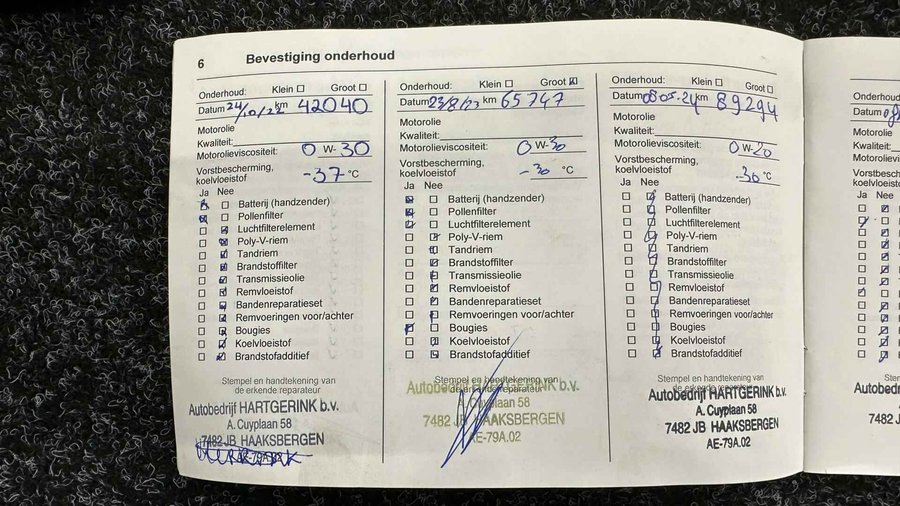 6 Bevestiging onderhoud
Onderhoud: Klein Groot
Datum 24/10/22 km 42040
Motorolie
Kwaliteit:
Motorolieviscositeit: 0 W-30
Vorstbescherming,
koelvloeistof -37 °C
Ja Nee
Batterij (handzender)
Pollenfilter
Luchtfilterelement
Poly-V-riem
Tandriem
Brandstoffilter
Transmissieolie
Remvloeistof
Bandenreparatieset
Remvoeringen voor/achter
Bougies
Koelvloeistof
Brandstofadditief
Stempel en handtekening van
de erkende reparateur
Autobedrijf HARTGERINK b.v.
A. Cuyplaan 58
7482 JB HAAKSBERGEN
AE-79A.02
Onderhoud: Klein Groot
Datum 23/8/23 km 65747
Motorolie
Kwaliteit:
Motorolieviscositeit: 0 W-30
Vorstbescherming,
koelvloeistof -30 °C
Ja Nee
Batterij (handzender)
Pollenfilter
Luchtfilterelement
Poly-V-riem
Tandriem
Brandstoffilter
Transmissieolie
Remvloeistof
Bandenreparatieset
Remvoeringen voor/achter
Bougies
Koelvloeistof
Brandstofadditief
Stempel en handtekening van
de erkende reparateur
Autobedrijf HARTGERINK b.v.
A. Cuyplaan 58
7482 JB HAAKSBERGEN
AE-79A.02
Onderhoud: Klein Groot
Datum 08-05-24 km 89294
Motorolie
Kwaliteit:
Motorolieviscositeit: 0 W-20
Vorstbescherming,
koelvloeistof -30 °C
Ja Nee
Batterij (handzender)
Pollenfilter
Luchtfilterelement
Poly-V-riem
Tandriem
Brandstoffilter
Transmissieolie
Remvloeistof
Bandenreparatieset
Remvoeringen voor/achter
Bougies
Koelvloeistof
Brandstofadditief
Stempel en handtekening van
de erkende reparateur
Autobedrijf HARTGERINK b.v.
A. Cuyplaan 58
7482 JB HAAKSBERGEN
AE-79A.02
Onderhoud
Datum
Motorolie
Kwaliteit:
Motorolieviscosi
Vorstbescherming,
koelvloeistof
Ja Nee
Autobedrijf
7482